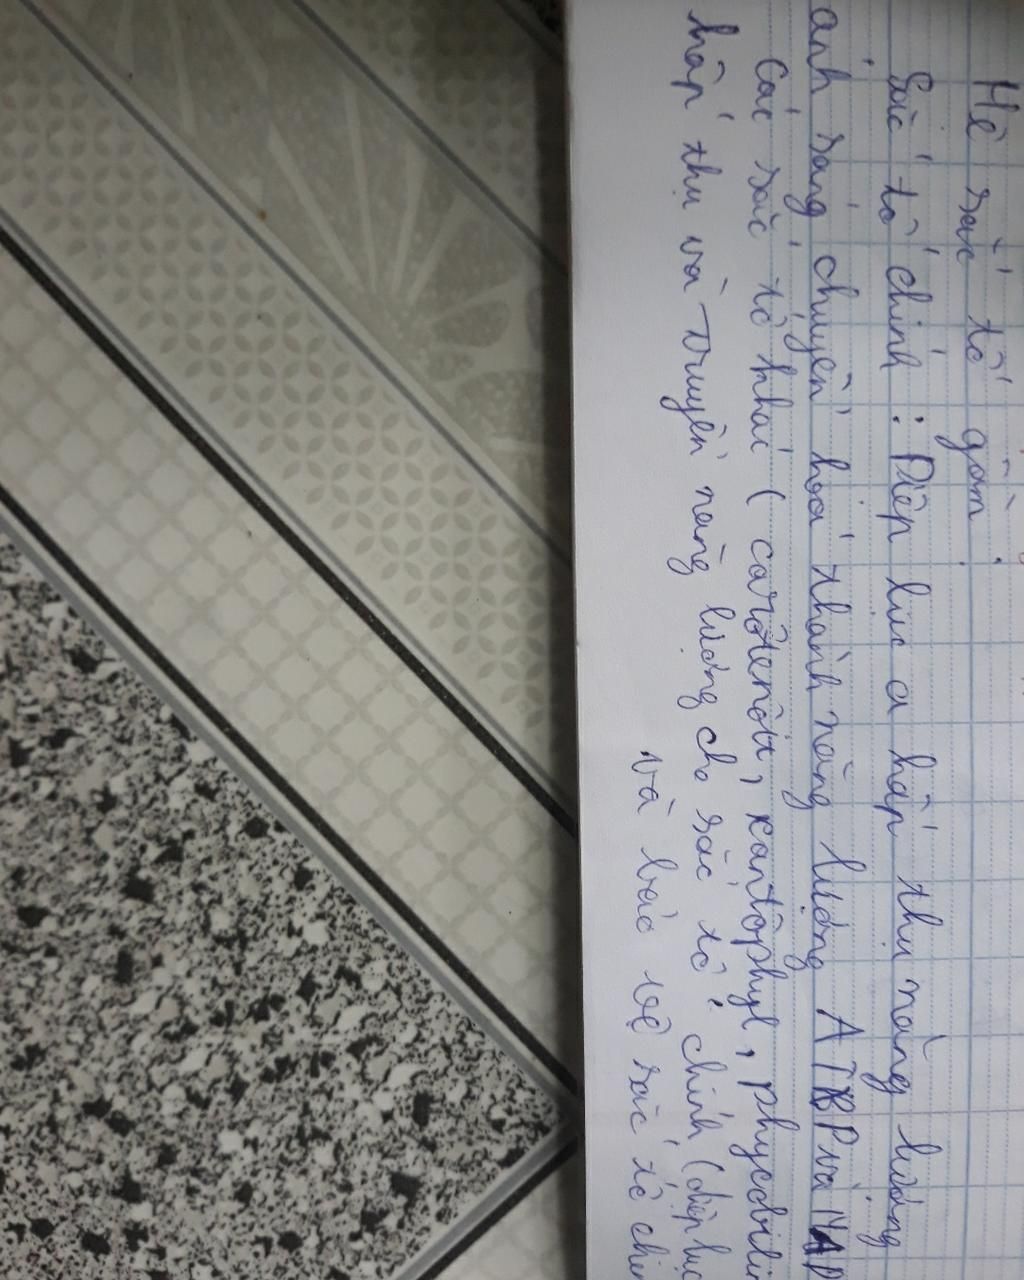 Hệ sắc tố gồm :
Sắc tố chính : Diệp lục a hấp thụ năng lượng
ánh sáng chuyển hoá thành năng lượng ATP và
Các sắc tố khác ( carôtenôit, xantôphyl, phycobili
hấp thụ và truyền năng lượng cho sắc tố chính (diệp lục
và bảo vệ sắc tố chín